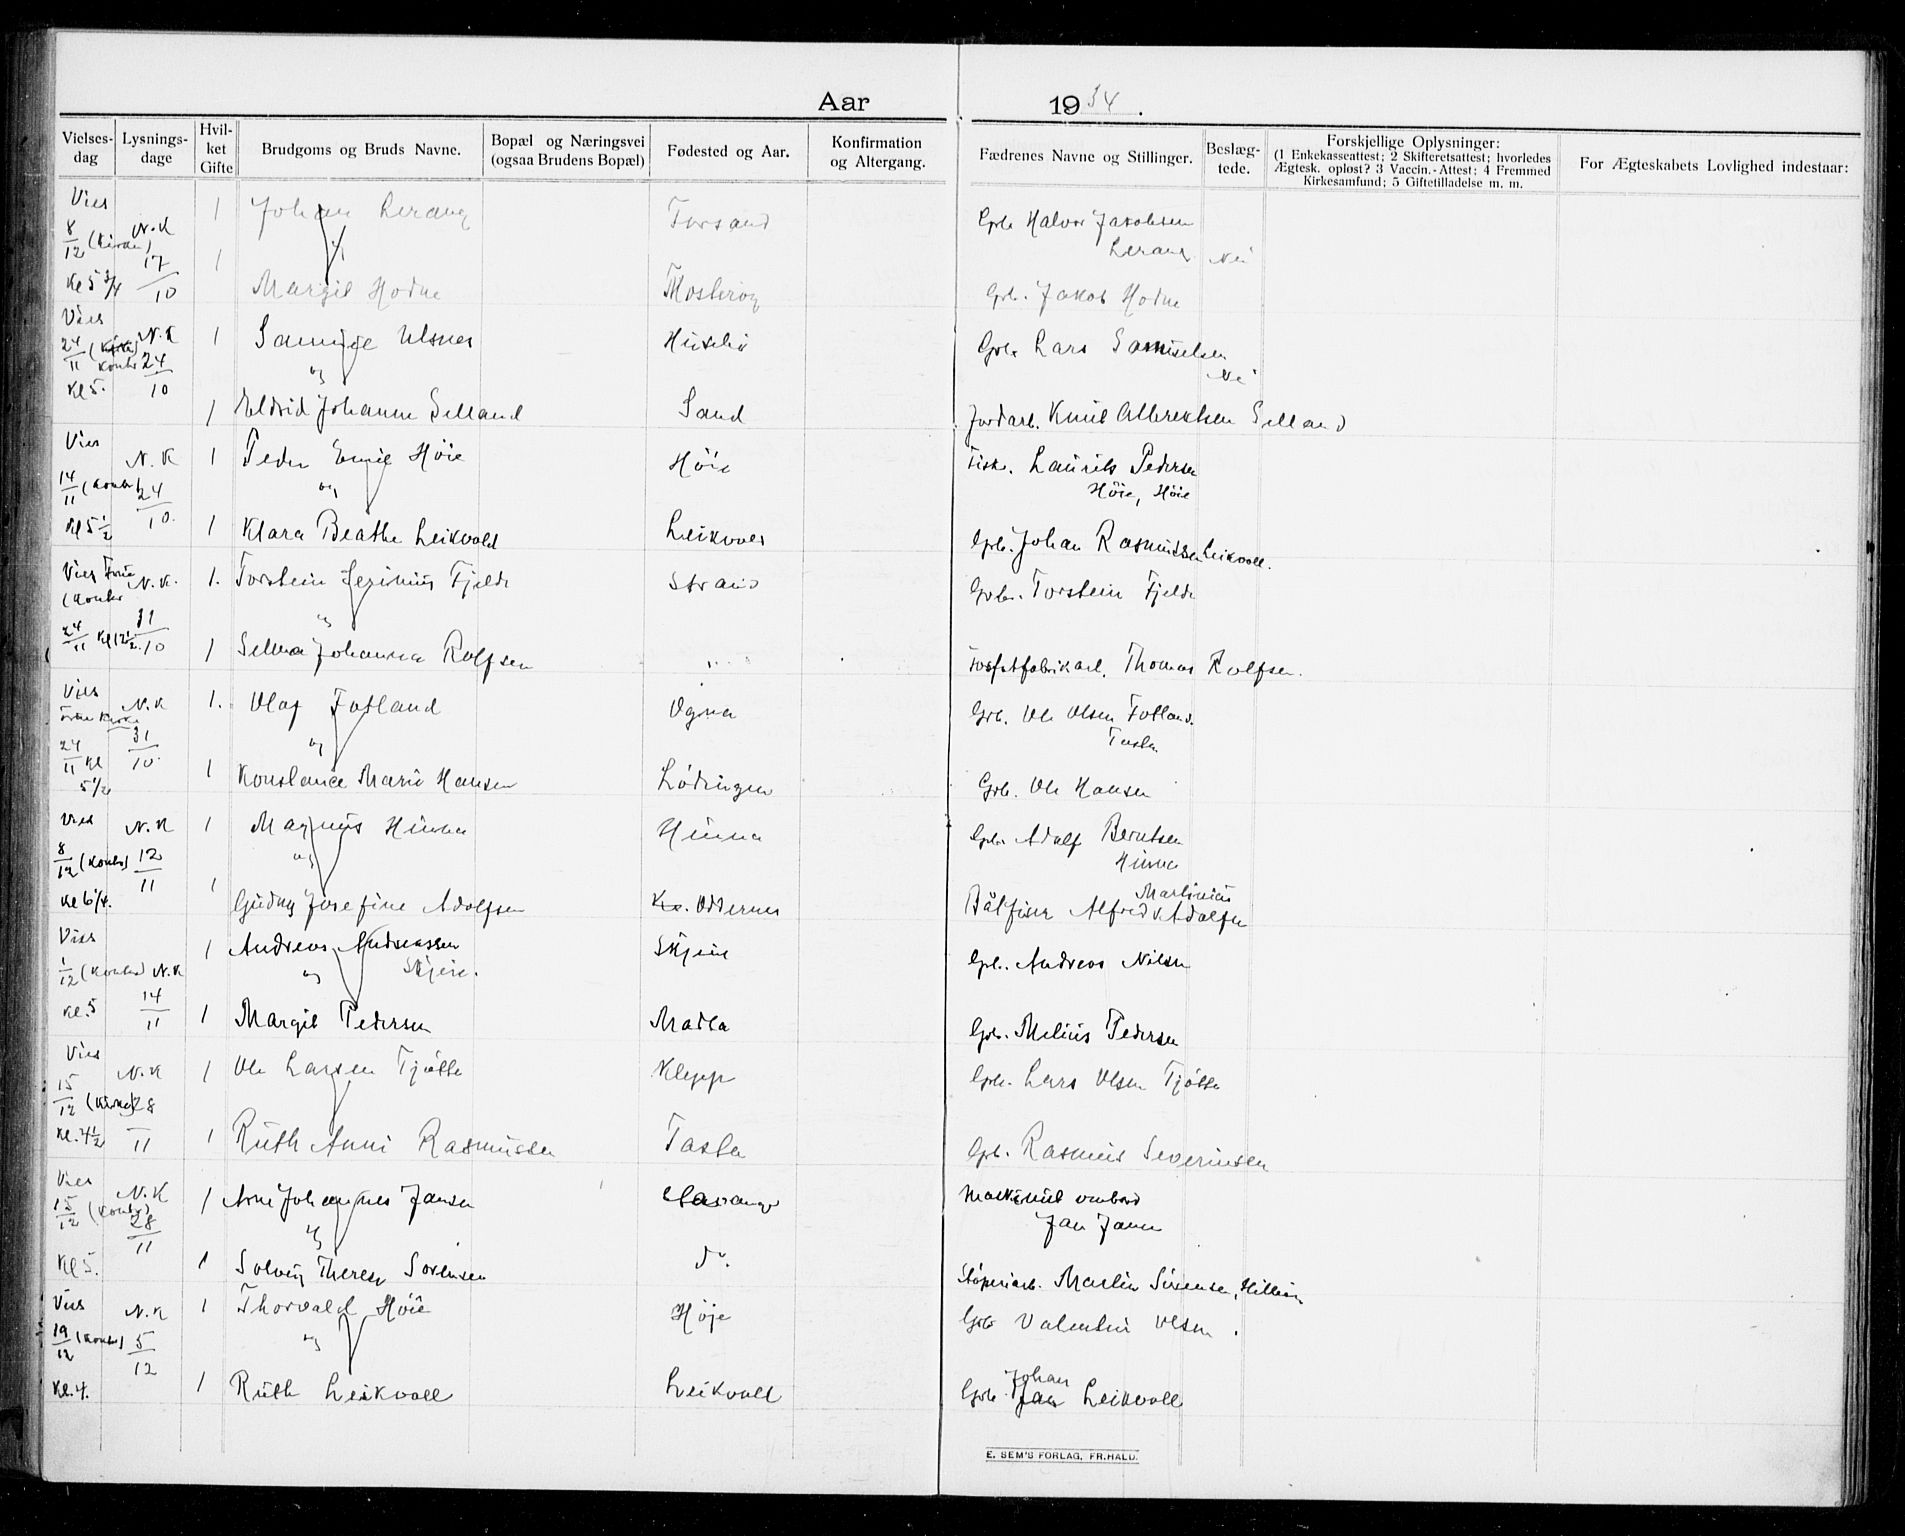 Aar 1934.
Vielses-dag
Lysnings-dage
Hvil-ket Gifte
Brudgoms og Bruds Navne.
Bopæl og Næringsvei (ogsaa Brudens Bopæl)
Fødested og Aar.
Konfirmation og Altergang.
Fædrenes Navne og Stillinger.
Beslæg-tede.
Forskjellige Oplysninger:
(1 Enkekasseattest; 2 Skifteretsattest; hvorledes
Ægtesk. opløst? 3 Vaccin.-Attest; 4 Fremmed
Kirkesamfund; 5 Giftetilladelse m. m.
For Ægteskabets Lovlighed indestaar:
Vies 1 Johan Lerang Forsand Grb. Halvor Jakobsen
8/12 N.K Lerang Nei
17/10 1
Kl 5 3/4 Margit Hodne Mosterøy Grb. Jakob Hodne
Vies
24/11 N.K 1 Ulsnes Grb. Lars Samuelsen
Kontr 24/10 og Nei
Kl 5. 1 Eldrid Johanne Selland Sand Jordarb. Knut Albrektsen Selland
Vies N.K 1 Peder Emil Høie Høie Fisk. Laurits Pedersen
14/11 (Kontr) 24/10. og Høie, Høie
Kl 5 1/2 1 Klara Beathe Leikvold Leikvoll Grb. Johan Rasmussen Leikvoll.
Vies N.K. 1. Torstein Fjelde Strand Grb. Torstein Fjelde
(Kontr 31/10 og
24/11 Kl 12 1/2 1 Selma Johanna Rolfsen " Fosfatfabrikarb. Thomas Rolfsen.
Vies N.K 1. Olaf Fotland Ogna Grb. Ole Olsen Fotland.
Kirke 31/10. og Tasta
24/11 Kl 5 1/2 1 Konstance Marie Hansen Lødingen Grb. Ole Hansen
Vies N.K 1 Magnus Hinna Hinna Grb. Adolf Berntsen
8/12 (Kontr) 12/11 og Hinna
Kl 6 1/4. 1 Gudny Josefine Adolfsen Oddernes Alfred Martinius Adolfsen
Vies 1 Andreas Andreassen Skjeie Grb. Andreas Nilsen
1/12 (Kontr) N.K og Skjeie.
Kl. 5 14/11 1 Margit Pedersen Madla Grb. Melius Pedersen
Vies N.K 1 Ole Larsen Tjøtta Klepp Grb. Lars Olsen Tjøtta
15/12 (Kirke) 28/11
Kl. 4 1/2 1 Ruth Anni Rasmussen Tasta Grb. Rasmus Severinsen
Vies N.K 1 Arne Johannes Jansen Stavanger Maskinist ombord
15/12 (Kontr) 28/11 og Jan Jansen
Kl 5. 1 Solveig Therese Sørensen do. Støperiarb. Martin Sørensen,
Vies N.K 1 Thorvald Høie Høje Grb Valentin Olsen.
19/12 (Kontr) 5/12 og
Kl. 4. 1 Ruth Leikvoll Leikvoll Grb. Johan Leikvoll
E. SEM'S FORLAG, FR.HALD.